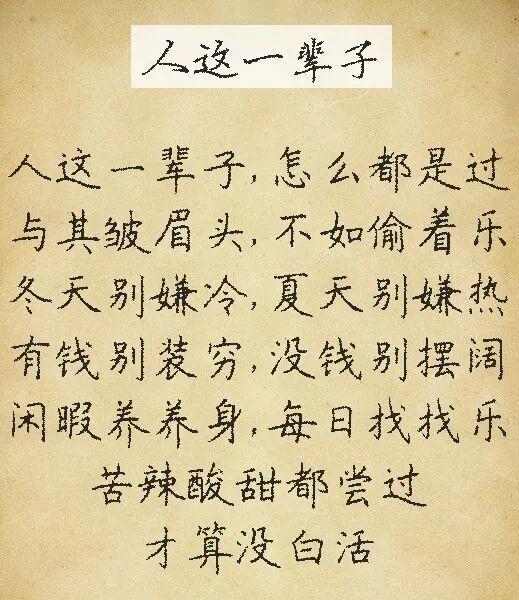 人这一辈子
人这一辈子,怎么都是过
与其皱眉头,不如偷着乐
冬天别嫌冷,夏天别嫌热
有钱别装穷,没钱别摆阔
闲暇养养身,每日找找乐
苦辣酸甜都尝过
才算没白活